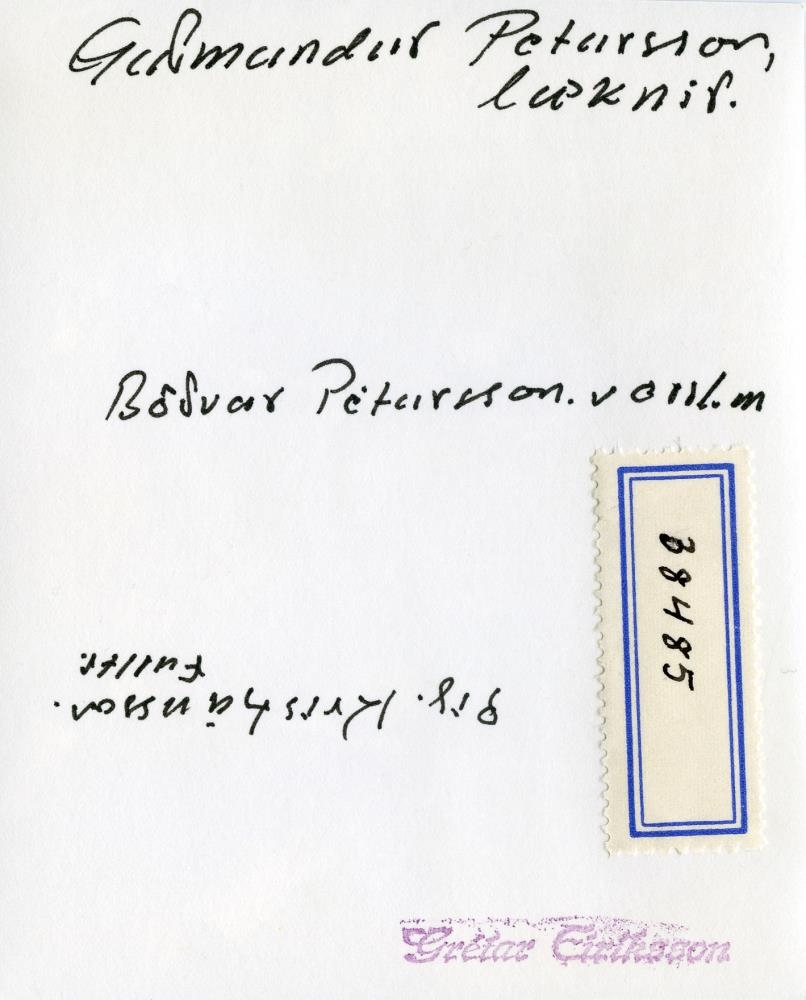 Guðmundur Pétursson,
læknir.
Böðvar Pétursson. versl.m
Sig. Kristjánsson.
Fulltr.
38485
Grétar Eiríksson